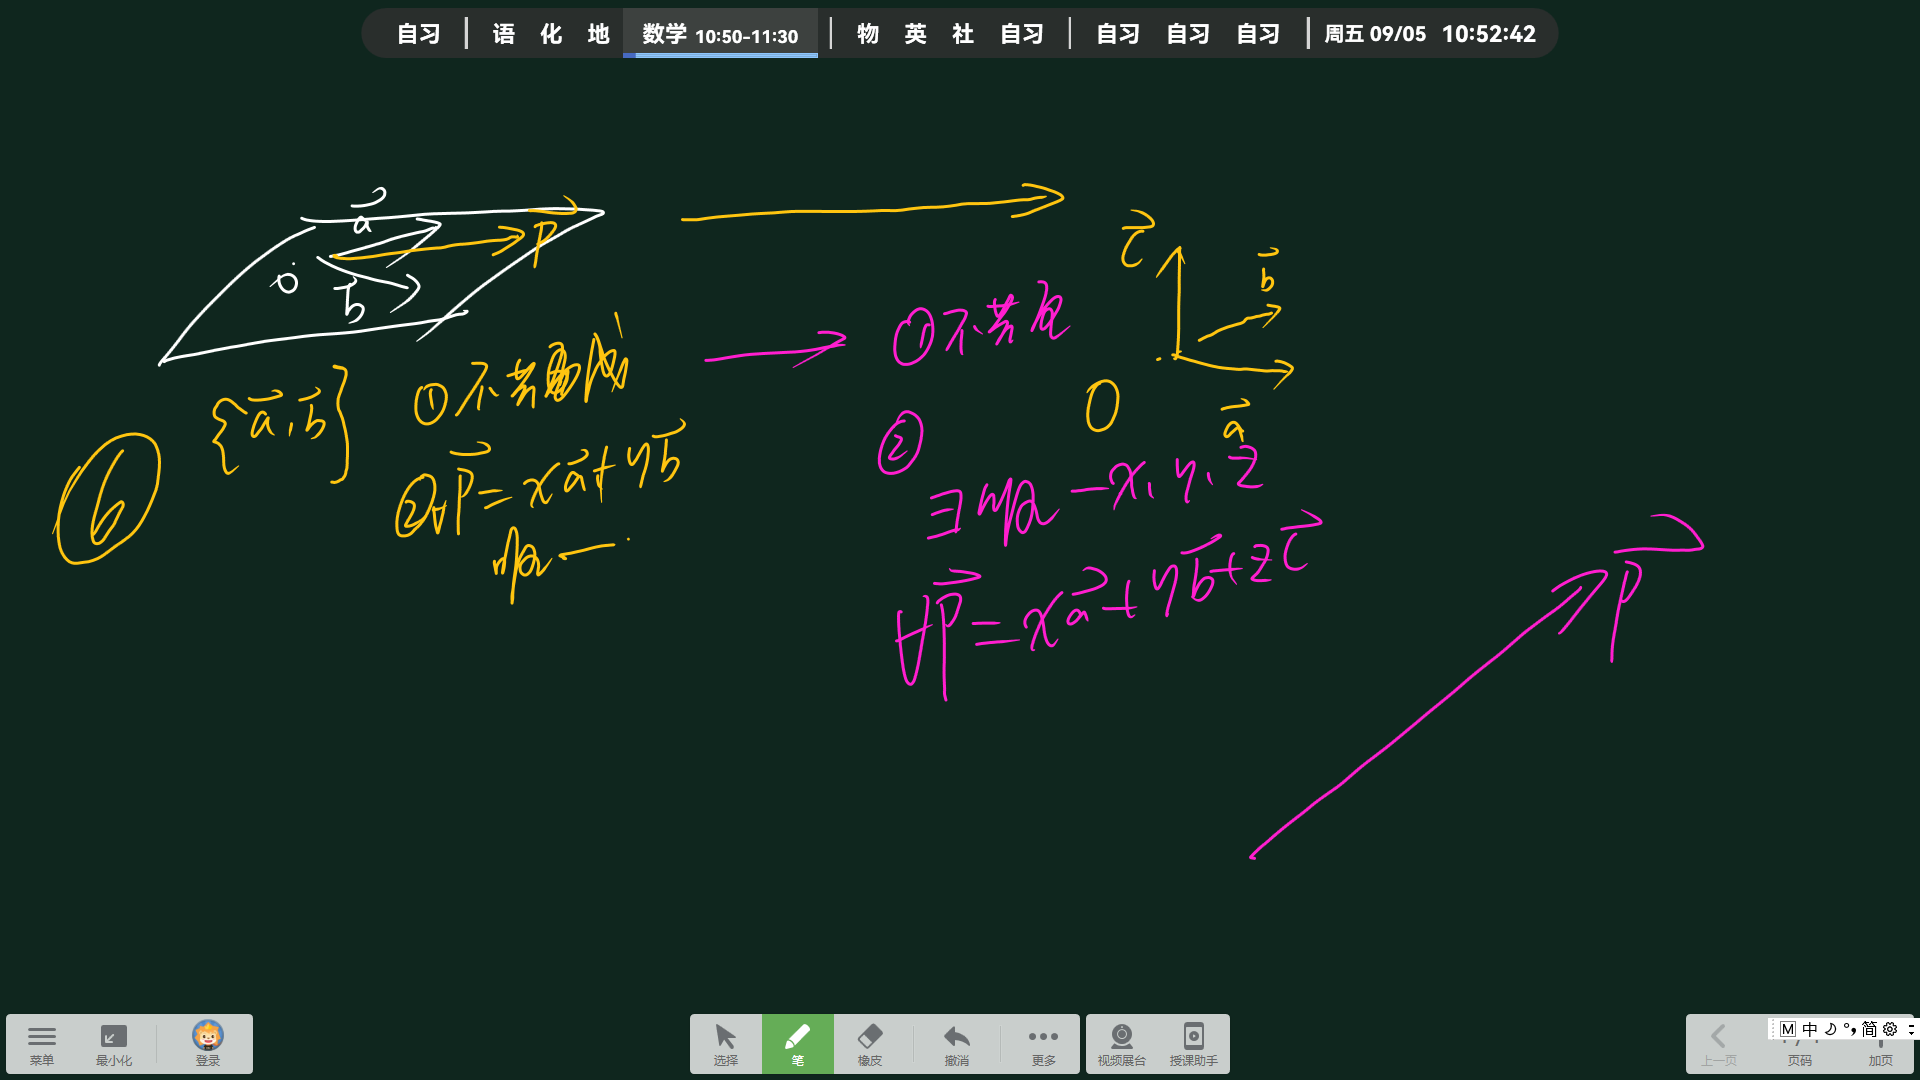 自习 | 语 化 地 数学 10:50-11:30 | 物 英 社 自习 | 自习 自习 自习 | 周五 09/05 10:52:42
a
P
O
b
c
b
O
a
①不共面
⑥
{a, b}
①不共线
②∀P=xa+yb
唯一
②
∃唯一x, y, z
∀P=xa+yb+zc
P
菜单 最小化 登录
选择 笔 橡皮 撤消 更多
视频展台 授课助手
上一页 页码 加页
M 中 简